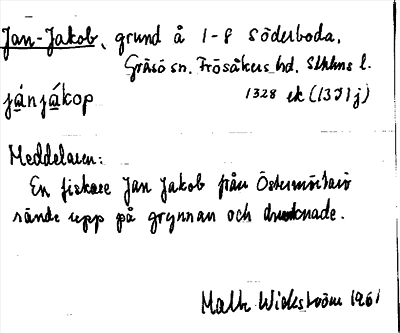 Jan-Jakob, grund å 1-8 Söderboda,
Gräsö sn. Frösåkers hd. Sthlms l.
jánjákop
1328 ek (13I1j)
Meddelaren:
En fiskare Jan Jakob från
rände upp på grynnan och drunknade.
Wickström 1961